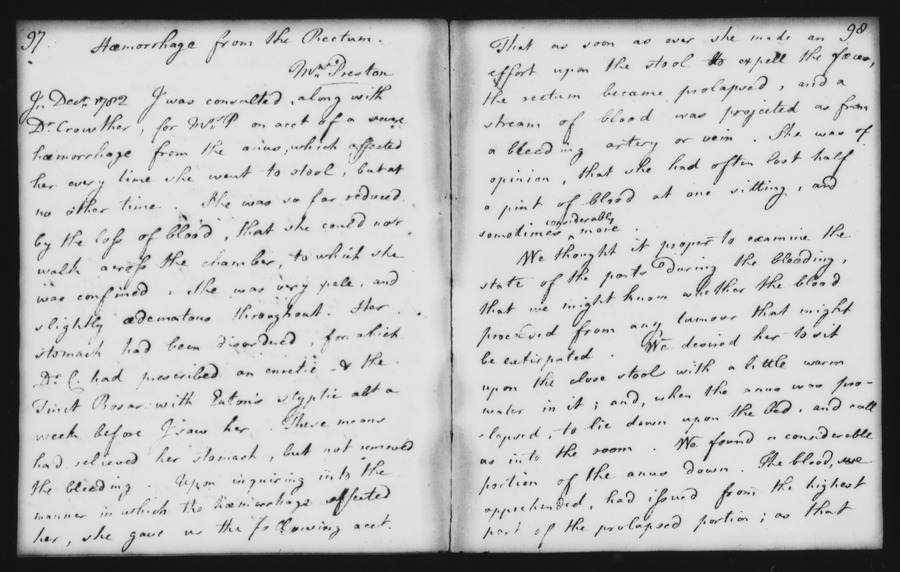 97
Hæmorrhage from the Rectum.
Mrs. Preston
In Decr. 1782 I was consulted, along with
Dr. Crowther, for Mrs. P on acct of a severe
hæmorrhage from the anus, which affected
her every time she went to stool, but at
no other time. She was so far reduced
by the loss of blood, that she could not
walk across the chamber, to which she
was confined. She was very pale, and
slightly ædematous throughout. Her
stomach had been disordered, for which
Dr. C. had prescribed an emetic & the
Tinct Rosar. with Eaton's styptic abt a
week before I saw her. These means
had relieved her stomach, but not removed
the bleeding. Upon inquiring into the
manner in which the hæmorrhage affected
her, she gave us the following acct.
98
That as soon as ever she made an
effort upon the stool to expell the fæces,
the rectum became prolapsed, and a
stream of blood was projected as from
a bleeding artery or vein. She was of
opinion, that she had often lost half
a pint of blood at one sitting, and
sometimes considerably more.
We thought it proper to examine the
state of the parts during the bleeding,
that we might know whether the blood
proceeded from any tumour that might
be extirpated. We desired her to sit
upon the close stool with a little warm
water in it; and, when the anus was pro-
-lapsed, to lie down upon the bed, and call
us into the room. We found a considerable
portion of the anus down. The blood, we
apprehended, had issued from the highest
part of the prolapsed portion; as that